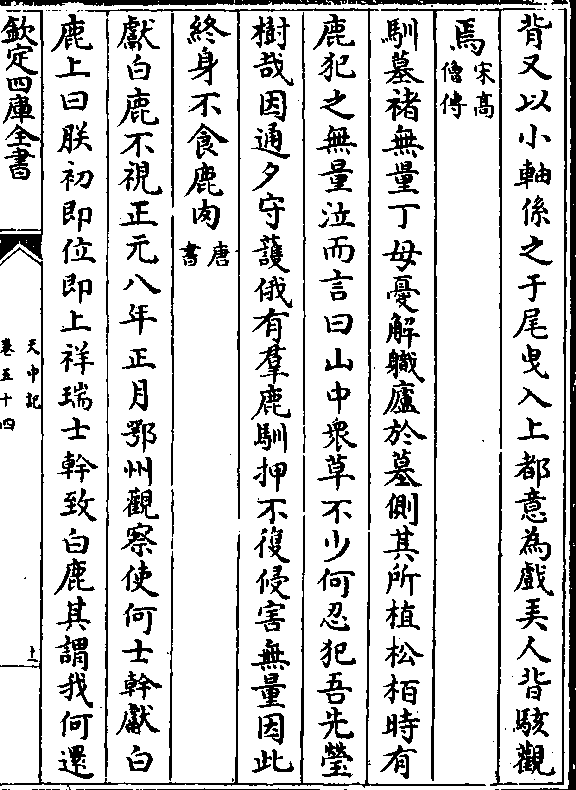 背又以小軸係之于尾曳入上都意為戲美人皆駭觀
焉宋高僧傳
馴墓褚無量丁母憂解職廬於墓側其所植松栢時有
鹿犯之無量泣而言曰山中衆草不少何忍犯吾先塋
樹哉因通夕守護俄有羣鹿馴押不復侵害無量因此
終身不食鹿肉唐書
獻白鹿不視正元八年正月鄂州觀察使何士幹獻白
鹿上曰朕初即位即上祥瑞士幹致白鹿其謂我何還
欽定四庫全書
天中記
卷五十四
十一